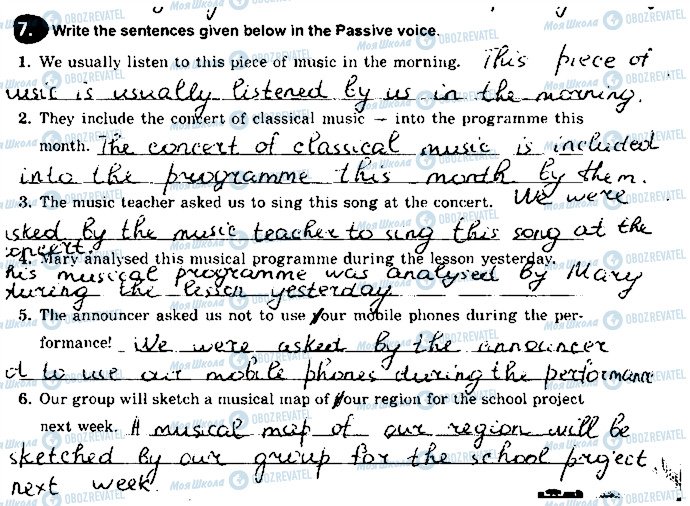 7. Write the sentences given below in the Passive voice.
1. We usually listen to this piece of music in the morning. This piece of
usic is usually listened by us in the morning.
2. They include the concert of classical music — into the programme this
month. The concert of classical music is included
into the programme this month by them.
3. The music teacher asked us to sing this song at the concert. We were
sked by the music teacher to sing this song at the
concert.
4. Mary analysed this musical programme during the lesson yesterday.
his musical programme was analysed by Mary
during the lesson yesterday
5. The announcer asked us not to use your mobile phones during the per-
formance! We were asked by the announcer
ot to use our mobile phones during the performance
6. Our group will sketch a musical map of our region for the school project
next week. A musical map of our region will be
sketched by our group for the school project
next week.